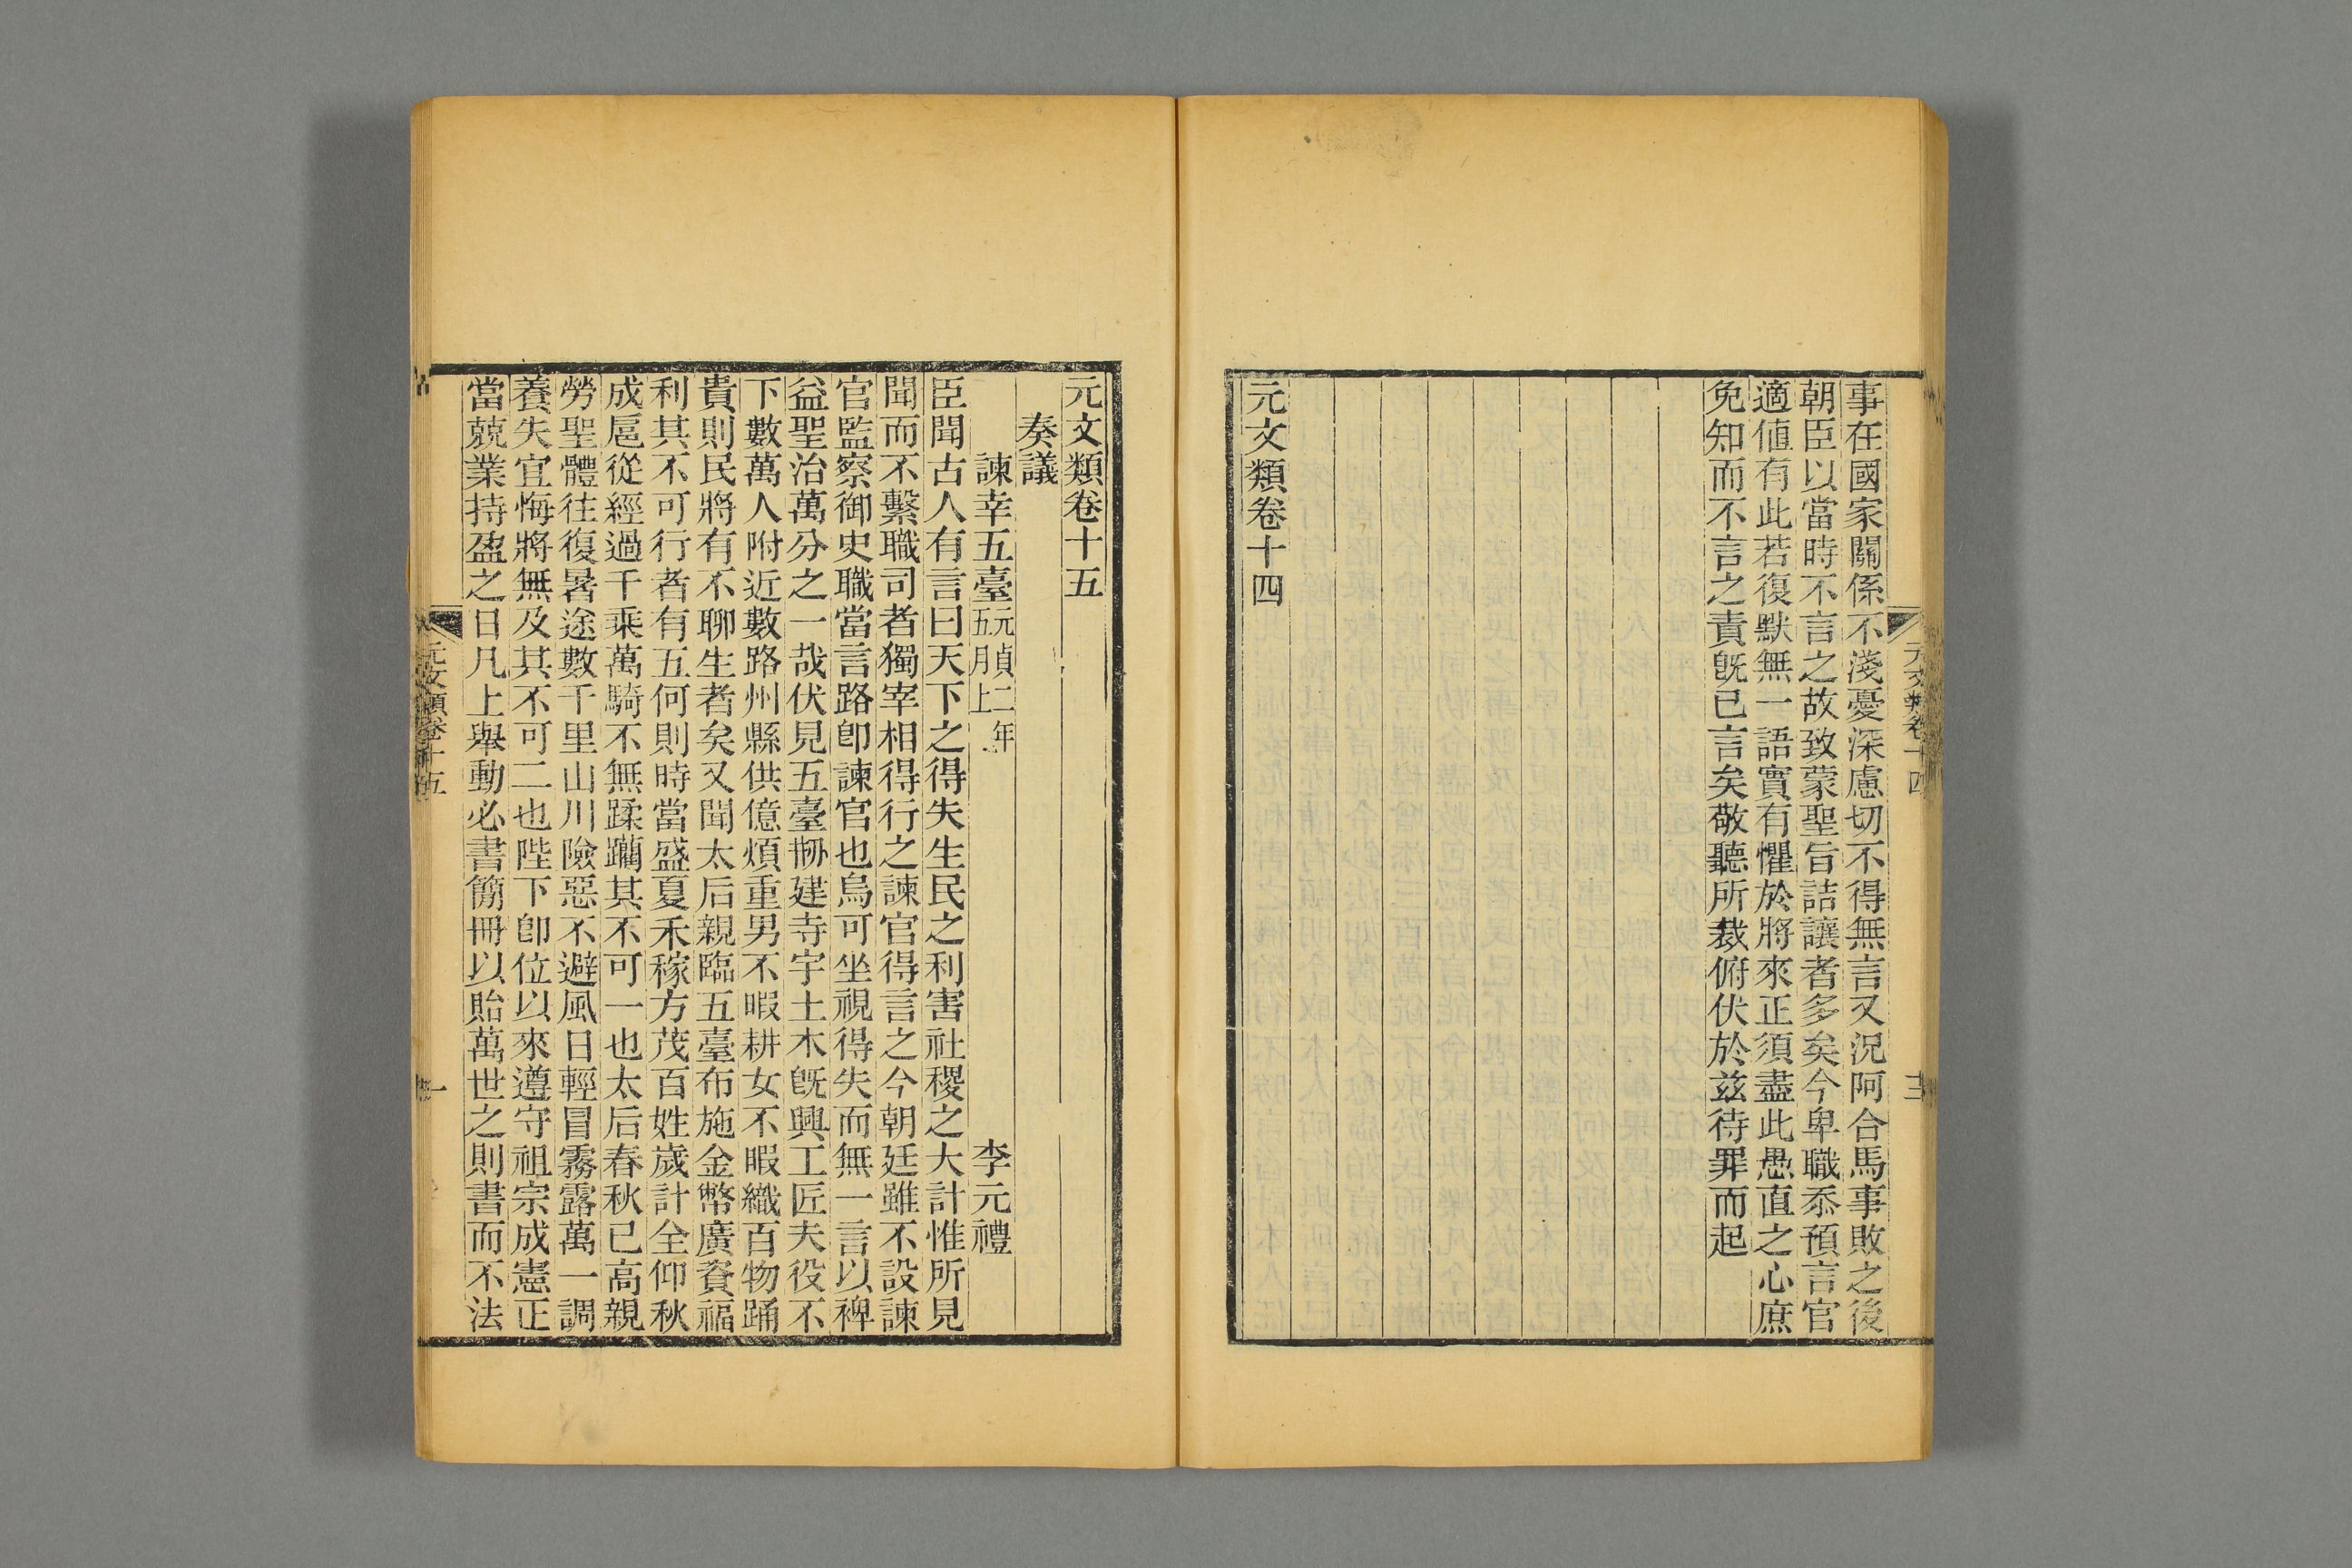 事在國家關係不淺憂深慮切不得無言又況阿合馬事敗之後
朝臣以當時不言之故致蒙聖旨詰讓者多矣今卑職忝預言官
適値有此若復默無一語實有懼於將來正須盡此愚直之心庶
免知而不言之責旣已言矣敬聽所裁俯伏於茲待罪而起
元文類卷十四
元文類卷十四
三
元文類卷十五
奏議
諫幸五臺元貞二年五月上 李元禮
臣聞古人有言曰天下之得失生民之利害社稷之大計惟所見
聞而不繫職司者獨宰相得行之諫官得言之今朝廷雖不設諫
官監察御史職當言路卽諫官也烏可坐視得失而無一言以裨
益聖治萬分之一哉伏見五臺刱建寺宇土木旣興工匠夫役不
下數萬人附近數路州縣供億煩重男不暇耕女不暇織百物踊
貴則民將有不聊生者矣又聞太后親臨五臺布施金幣廣資福
利其不可行者有五何則時當盛夏禾稼方茂百姓歲計全仰秋
成扈從經過千乘萬騎不無蹂躪其不可一也太后春秋已高親
勞聖體往復暑途數千里山川險惡不避風日輕冒霧露萬一調
養失宜悔將無及其不可二也陛下卽位以來遵守祖宗成憲正
當兢業持盈之日凡上舉動必書簡冊以貽萬世之則書而不法
元文類卷十五
一